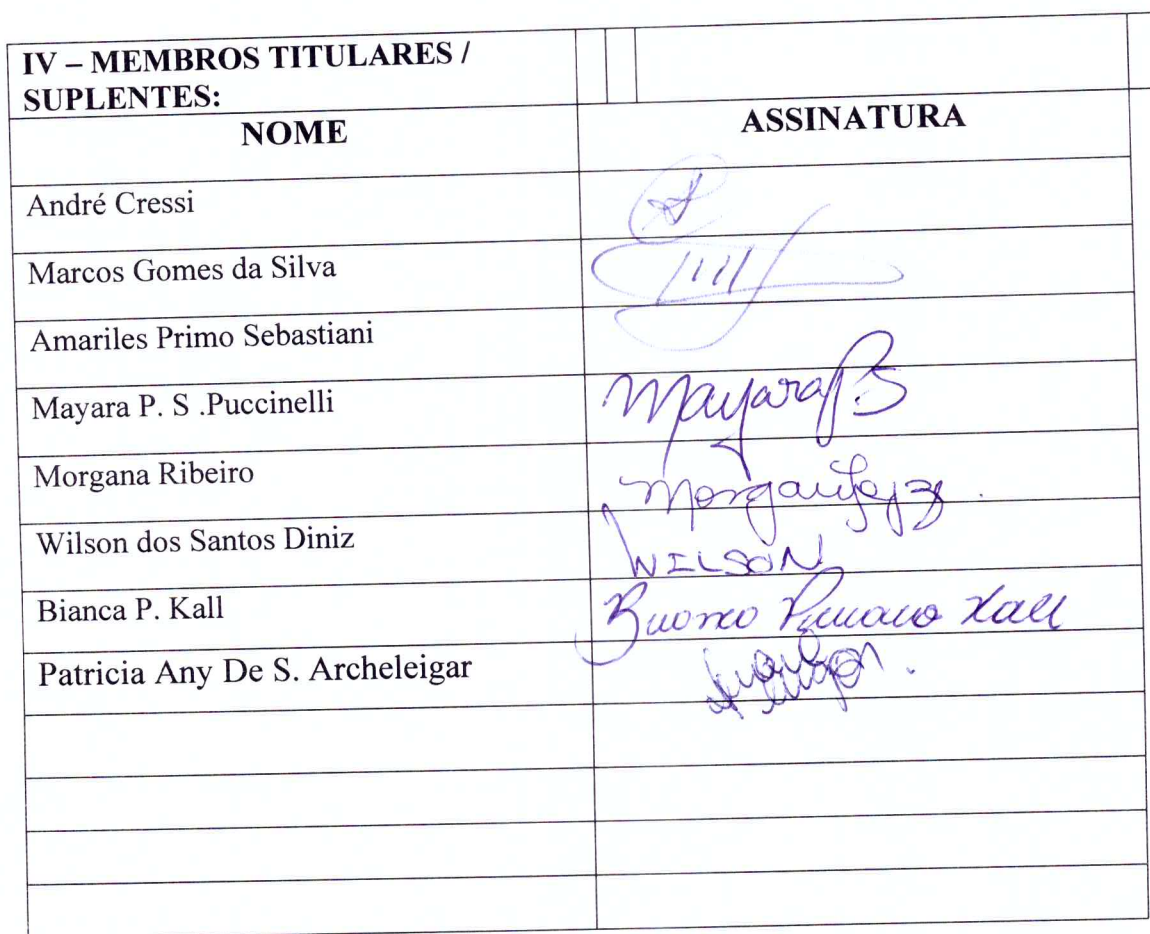 IV – MEMBROS TITULARES /
SUPLENTES:
NOME ASSINATURA
André Cressi
Marcos Gomes da Silva
Amariles Primo Sebastiani
Mayara P. S .Puccinelli MayaraPS
Morgana Ribeiro
Wilson dos Santos Diniz WILSON
Bianca P. Kall Kall
Patricia Any De S. Archeleigar